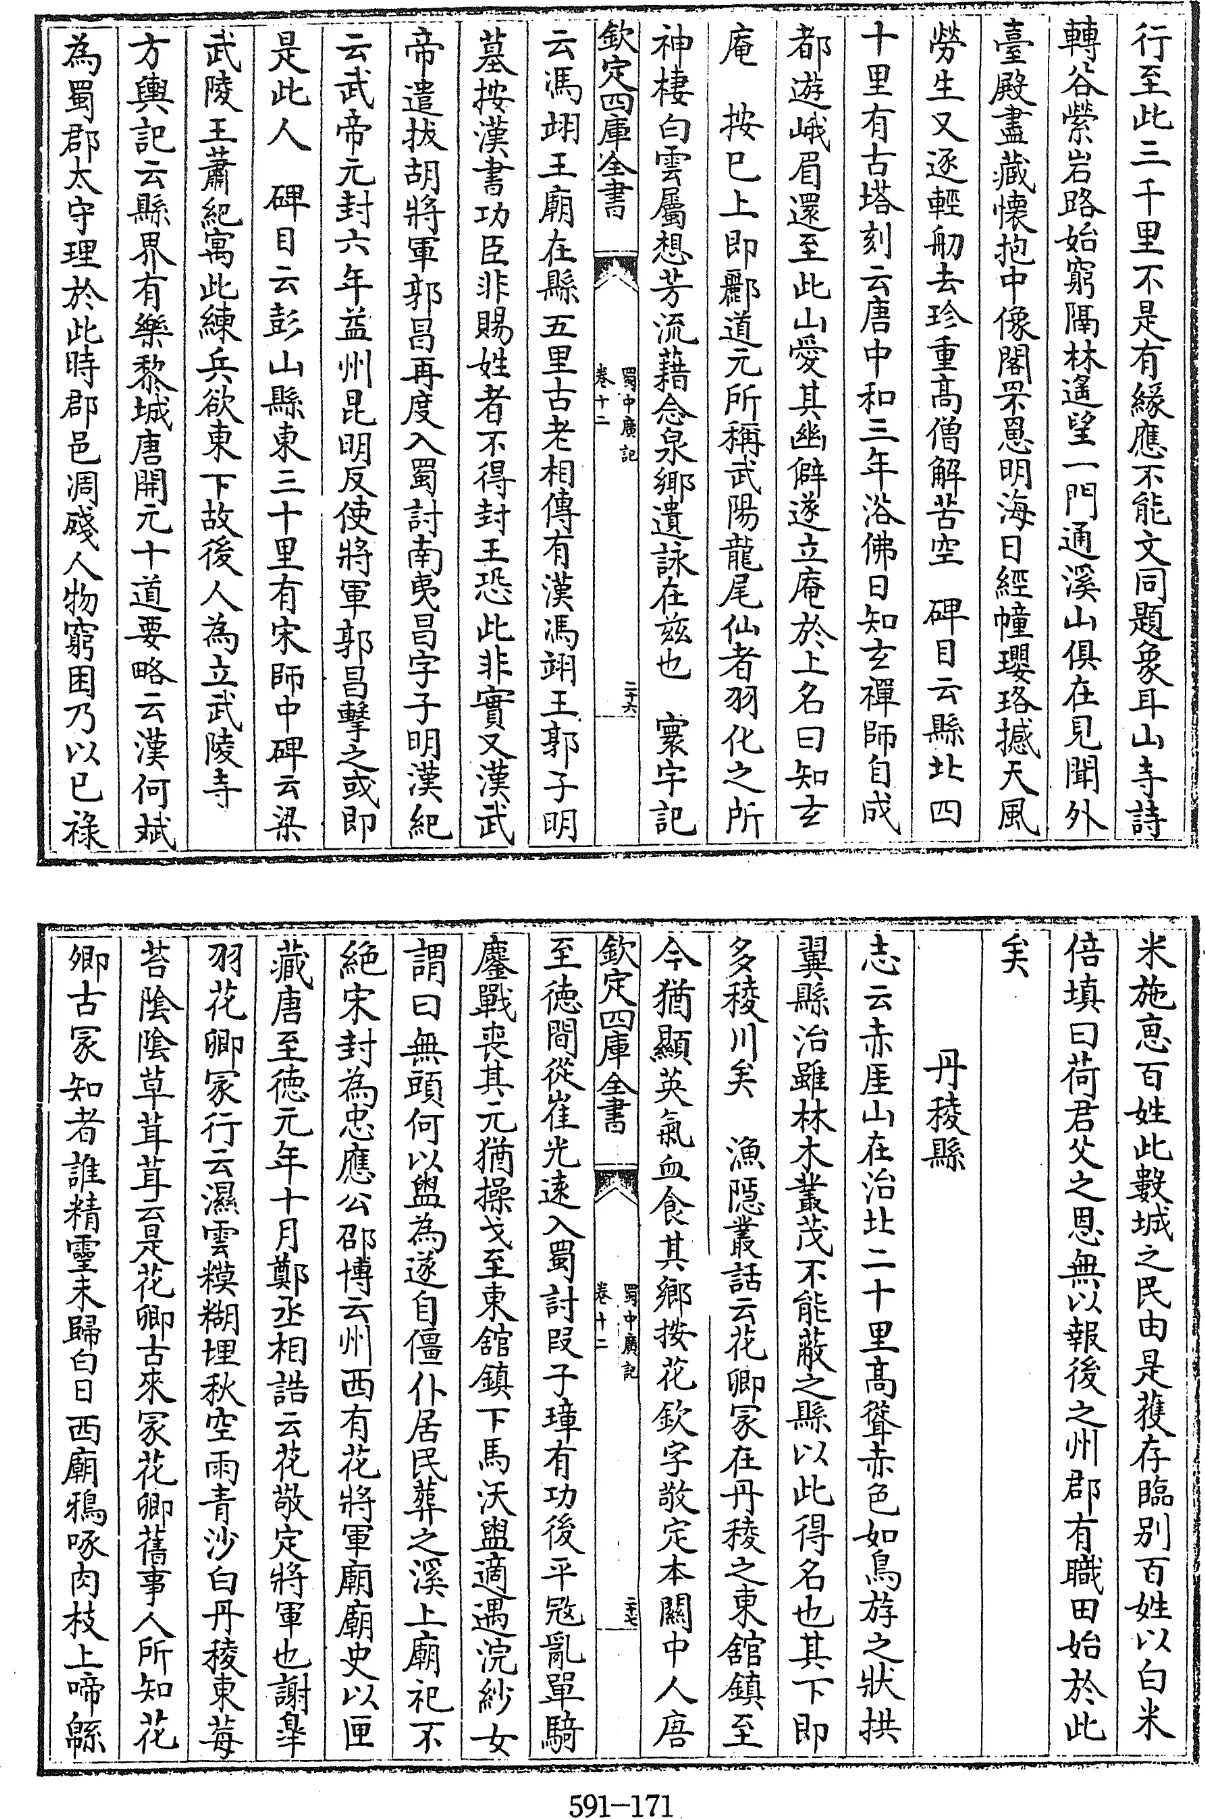 行至此三千里不是有緣應不能文同題象耳山寺詩
轉谷縈岩路始窮隔林遙望一門通溪山俱在見聞外
臺殿盡藏懷抱中像閣罘罳明海日經幢瓔珞撼天風
勞生又逐輕舠去珍重高僧解苦空　碑目云縣北四
十里有古塔刻云唐中和三年浴佛日知玄禪師自成
都遊峨眉還至此山愛其幽僻遂立庵於上名曰知玄
庵　按已上即酈道元所稱武陽龍尾仙者羽化之所
神棲白雲屬想芳流藉念泉鄉遺詠在兹也　寰宇記
欽定四庫全書
蜀中廣記
卷十二
二十六
云馮翊王廟在縣五里古老相傳有漢馮翊王郭子明
墓按漢書功臣非賜姓者不得封王恐此非實又漢武
帝遣拔胡將軍郭昌再度入蜀討南夷昌字子明漢紀
云武帝元封六年益州昆明反使將軍郭昌擊之或即
是此人　碑目云彭山縣東三十里有宋師中碑云梁
武陵王蕭紀寓此練兵欲東下故後人為立武陵寺
方輿記云縣界有樂黎城唐開元十道要略云漢何斌
為蜀郡太守理於此時郡邑凋殘人物窮困乃以已祿
米施恵百姓此數城之民由是獲存臨别百姓以白米
倍填曰荷君父之恩無以報後之州郡有職田始於此
矣
丹稜縣
志云赤厓山在治北二十里高聳赤色如鳥斿之狀拱
翼縣治雖林木叢茂不能蔽之縣以此得名也其下即
多稜川矣　漁隱叢話云花卿冢在丹稜之東舘鎮至
今猶顯英氣血食其鄉按花欽字敬定本關中人唐
欽定四庫全書
蜀中廣記
卷十二
二十七
至徳間從崔光遠入蜀討叚子璋有功後平宼亂單騎
鏖戰喪其元猶操戈至東舘鎮下馬沃盥適遇浣紗女
謂曰無頭何以盥為遂自僵仆居民葬之溪上廟祀不
絶宋封為忠應公邵博云州西有花將軍廟廟史以匣
藏唐至徳元年十月鄭丞相誥云花敬定將軍也謝皋
羽花卿冢行云濕雲糢糊埋秋空雨青沙白丹稜東莓
苔陰陰草茸茸云是花卿古來冢花卿舊事人所知花
卿古冢知者誰精靈未歸白日西廟鴉啄肉枝上啼緜
591-171